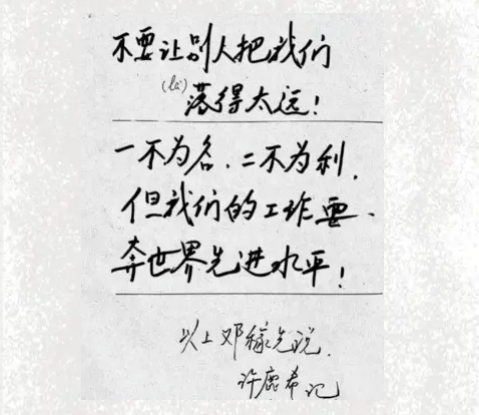 不要让别人把我们
(là)
落得太远！
一不为名、二不为利，
但我们的工作要、
奔世界先进水平！
以上邓稼先说．
许鹿希记